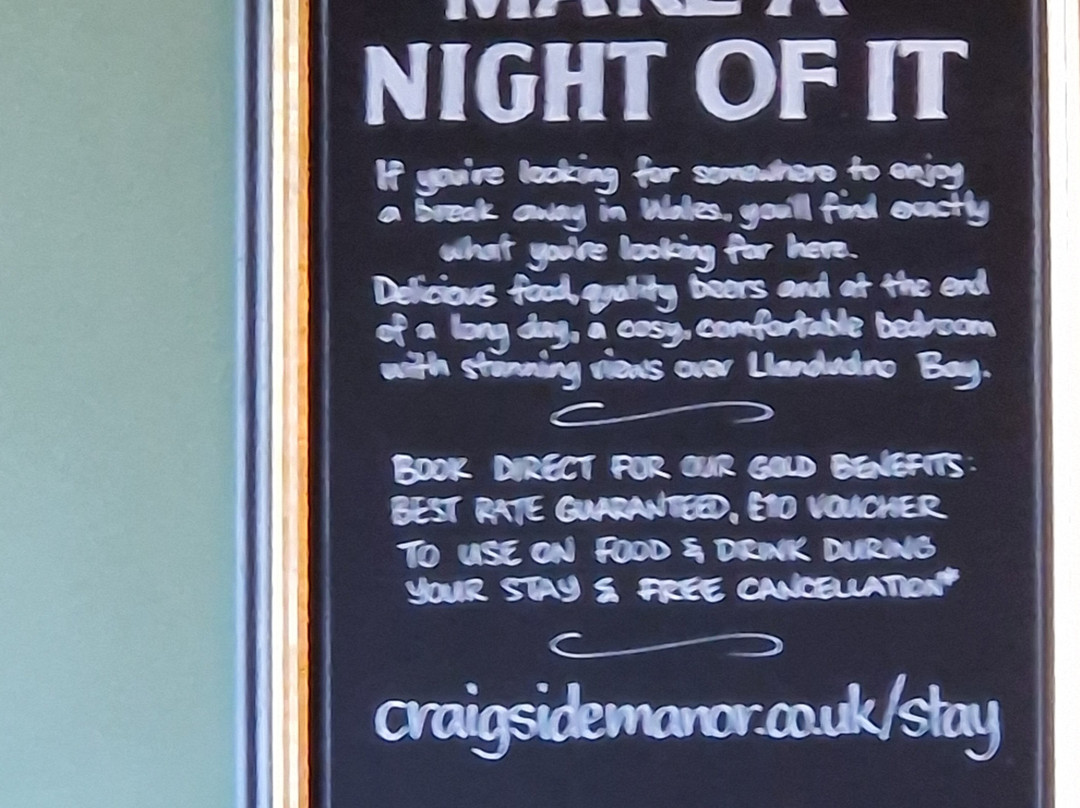 MAKE A
NIGHT OF IT
If you're looking for somewhere to enjoy
a break away in Wales, you'll find exactly
what you're looking for here.
Delicious food, quality beers and at the end
of a long day, a cosy, comfortable bedroom
with stunning views over Llandudno Bay.
BOOK DIRECT FOR OUR GOLD BENEFITS:
BEST RATE GUARANTEED, £10 VOUCHER
TO USE ON FOOD & DRINK DURING
YOUR STAY & FREE CANCELLATION*
craigsidemanor.co.uk/stay